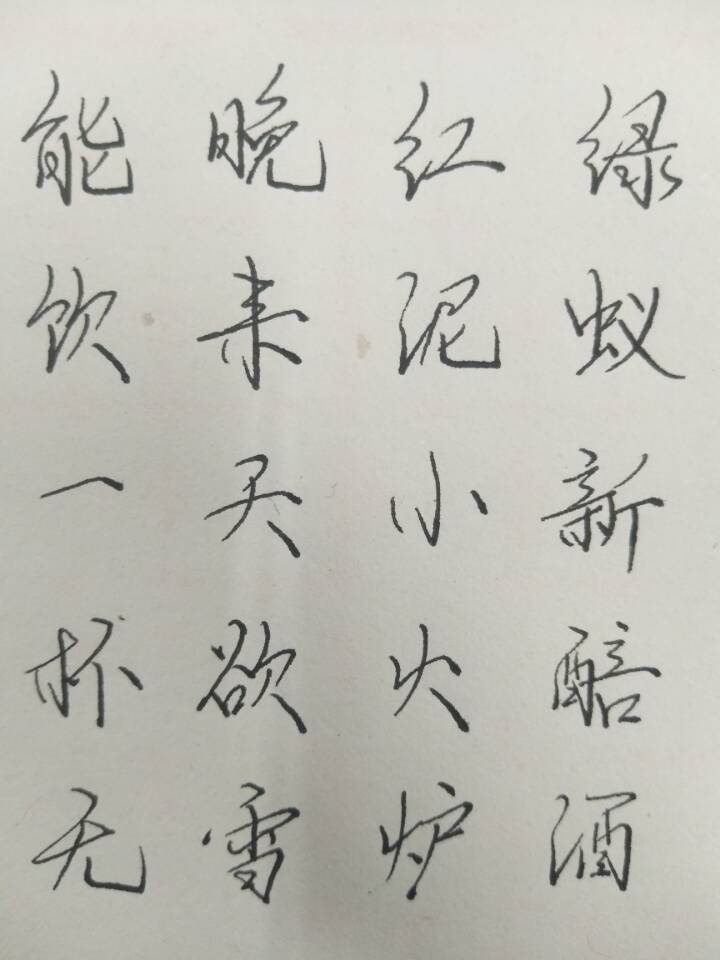 绿蚁新醅酒
红泥小火炉
晚来天欲雪
能饮一杯无